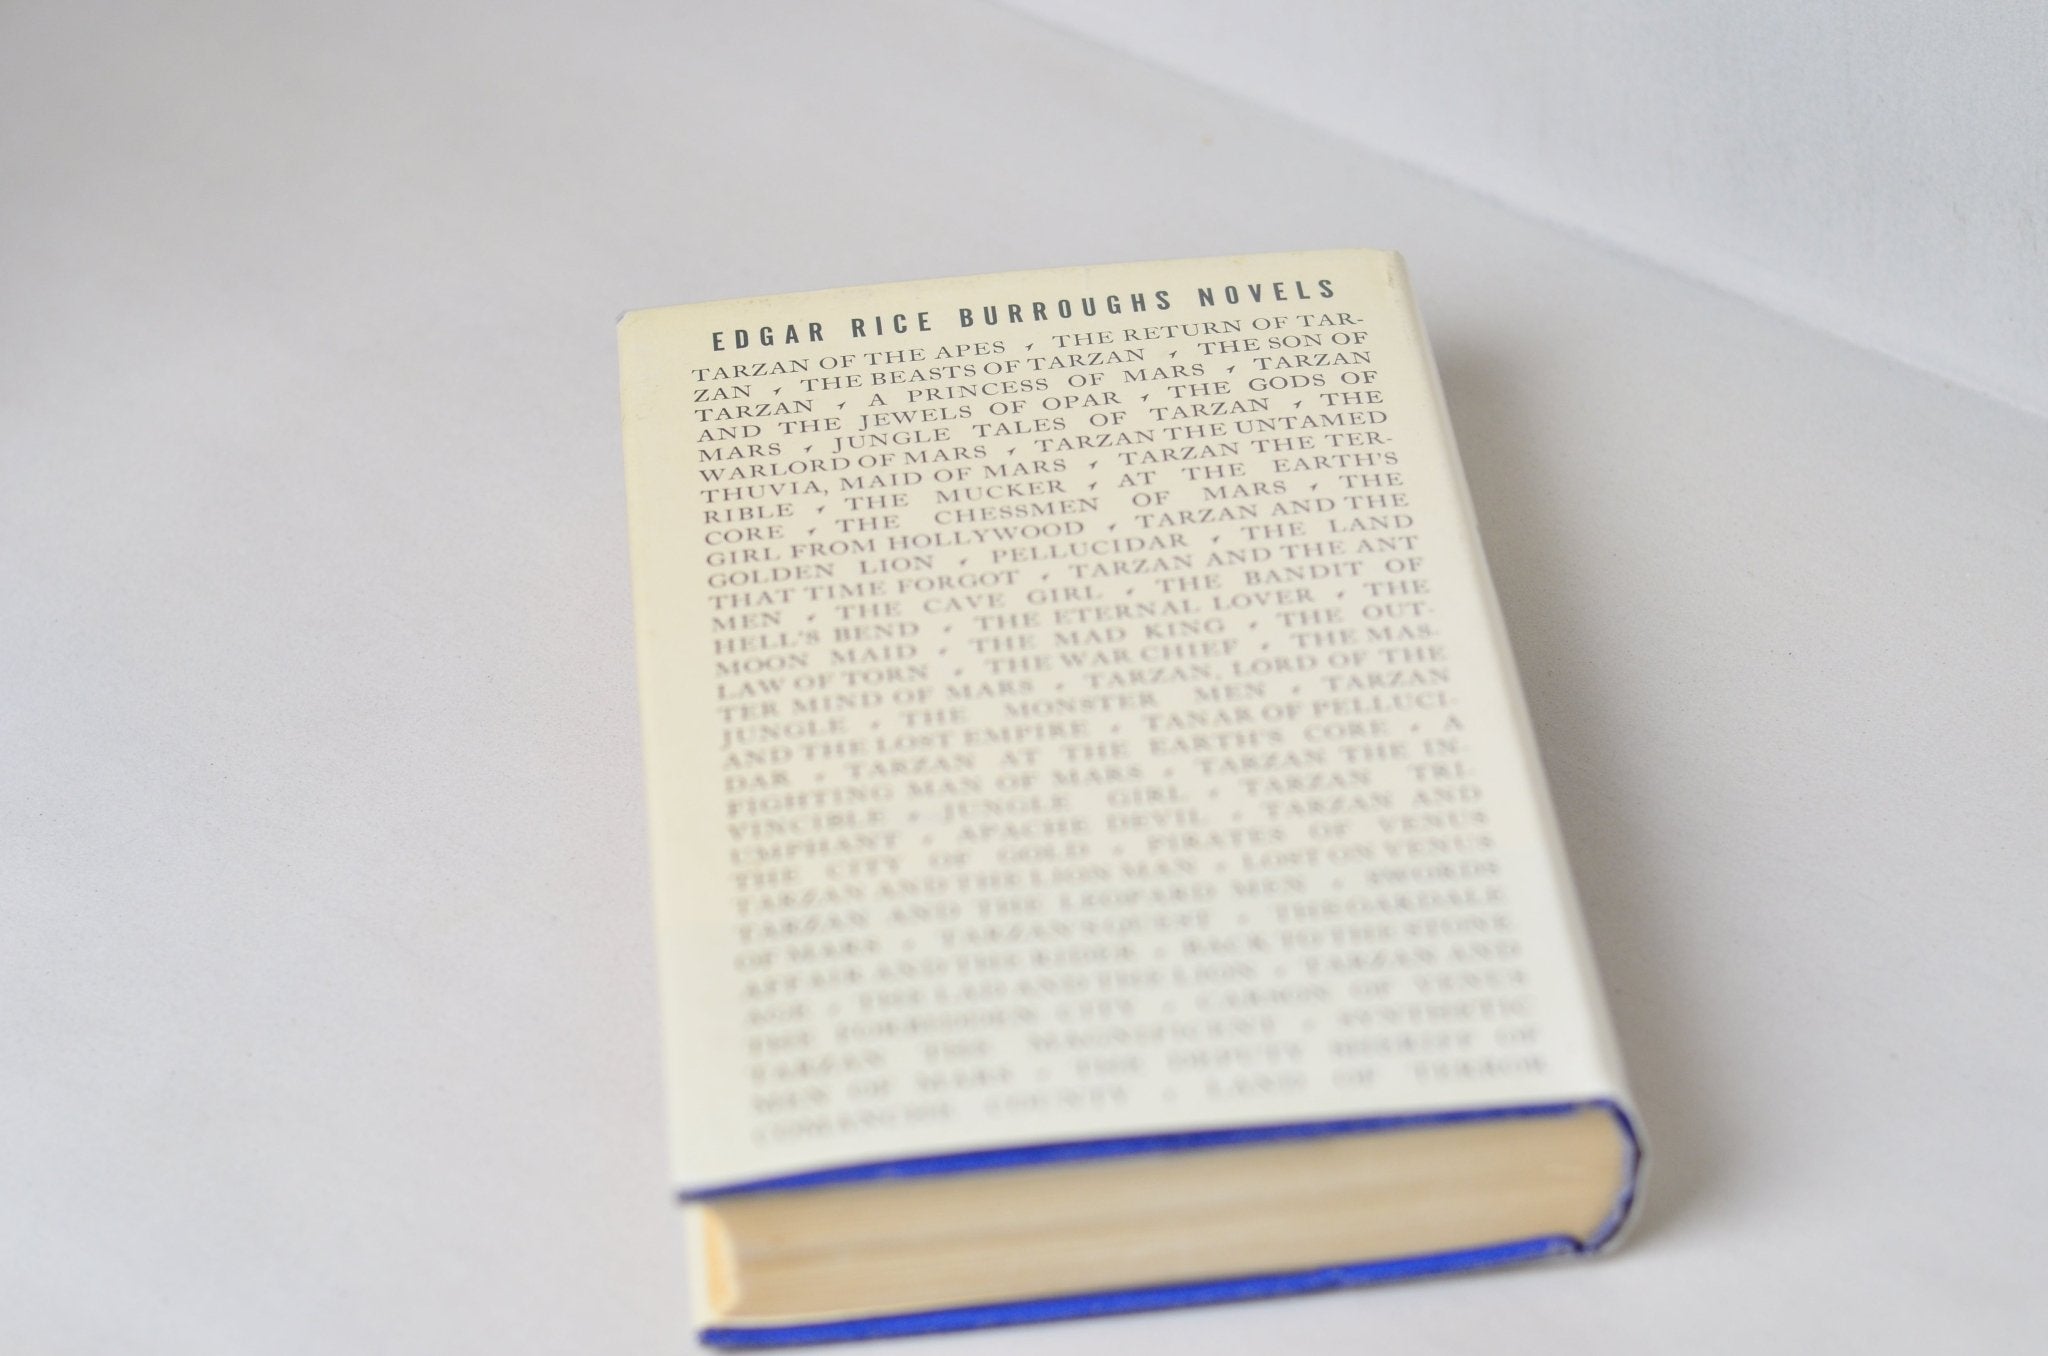 EDGAR RICE BURROUGHS NOVELS
TARZAN OF THE APES ⁌ THE RETURN OF TAR-
ZAN ⁌ THE BEASTS OF TARZAN ⁌ THE SON OF
TARZAN ⁌ A PRINCESS OF MARS ⁌ TARZAN
AND THE JEWELS OF OPAR ⁌ THE GODS OF
MARS ⁌ JUNGLE TALES OF TARZAN ⁌ THE
WARLORD OF MARS ⁌ TARZAN THE UNTAMED
THUVIA, MAID OF MARS ⁌ TARZAN THE TER-
RIBLE ⁌ THE MUCKER ⁌ AT THE EARTH'S
CORE ⁌ THE CHESSMEN OF MARS ⁌ THE
GIRL FROM HOLLYWOOD ⁌ TARZAN AND THE
GOLDEN LION ⁌ PELLUCIDAR ⁌ THE LAND
THAT TIME FORGOT ⁌ TARZAN AND THE ANT
MEN ⁌ THE CAVE GIRL ⁌ THE BANDIT OF
HELL'S BEND ⁌ THE ETERNAL LOVER ⁌ THE
MOON MAID ⁌ THE MAD KING ⁌ THE OUT-
LAW OF TORN ⁌ THE WAR CHIEF ⁌ THE MAS-
TER MIND OF MARS ⁌ TARZAN, LORD OF THE
JUNGLE ⁌ THE MONSTER MEN ⁌ TARZAN
AND THE LOST EMPIRE ⁌ TANAR OF PELLUCI-
DAR ⁌ TARZAN AT THE EARTH'S CORE ⁌ A
FIGHTING MAN OF MARS ⁌ TARZAN THE IN-
VINCIBLE ⁌ JUNGLE GIRL ⁌ TARZAN TRI-
UMPHANT ⁌ APACHE DEVIL ⁌ TARZAN AND
THE CITY OF GOLD ⁌ PIRATES OF VENUS
TARZAN AND THE LION MAN ⁌ LOST ON VENUS
TARZAN AND THE LEOPARD MEN ⁌ SWORDS
OF MARS ⁌ TARZAN'S QUEST ⁌ THE OAKDALE
AFFAIR AND THE RIDER ⁌ BACK TO THE STONE
AGE ⁌ THE LAD AND THE LION ⁌ TARZAN AND
THE FORBIDDEN CITY ⁌ CARSON OF VENUS
TARZAN THE MAGNIFICENT ⁌ SYNTHETIC
MEN OF MARS ⁌ THE DEPUTY SHERIFF OF
COMANCHE COUNTY ⁌ LAND OF TERROR